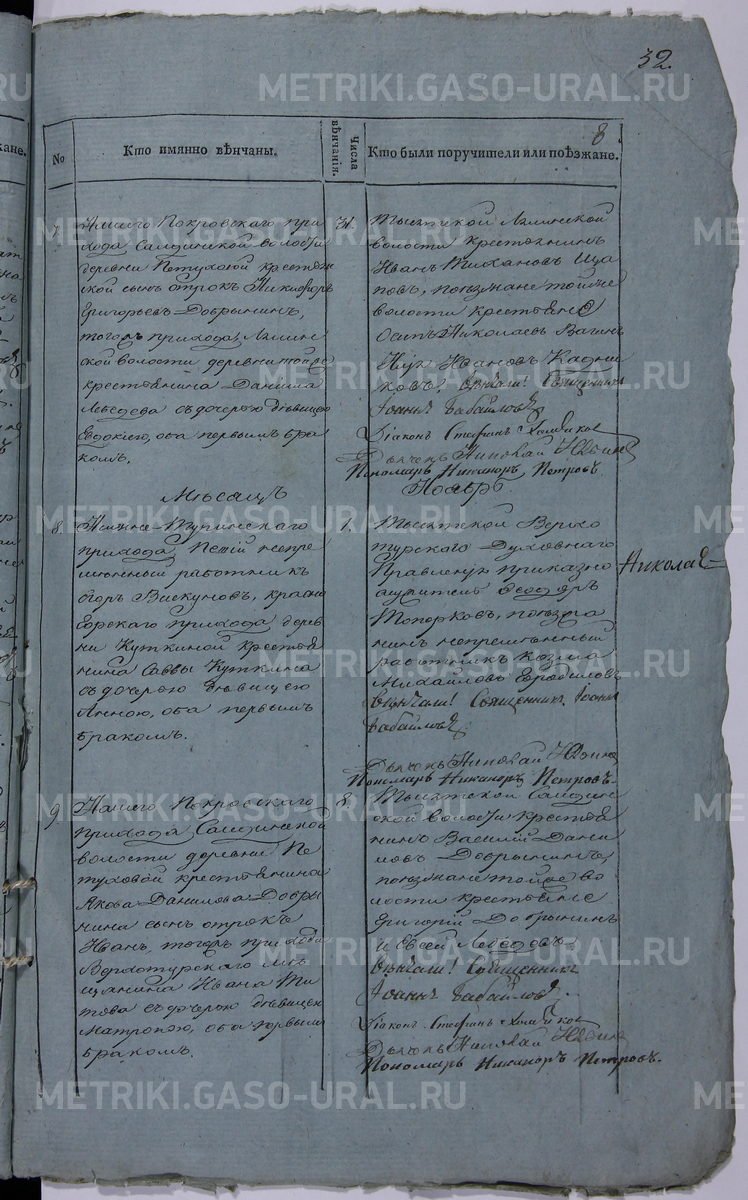 32.
8
жане.
№
Кто имянно вѣнчаны.
Числа вѣнчанія.
Кто были поручители или поѣзжане.
7.
Нашего Покровскаго при
хода Салдинской волости
деревни Петуховой крестьян
ской сынъ отрокъ Никифоръ
Григорьевъ Добрынинъ,
тогожъ прихода
ской волости деревни тойже
крестьянина Данила
Лебедева съ дочерью дѣвицею
Евдокіею, оба первымъ бра
комъ.
31.
Тысяцкой
волости крестьянинъ
Иванъ
повъ, поѣзжане тойже
волости крестьяне
Осипъ Николаевъ Вагинъ
Иванов
ковъ, вѣнчали! Священникъ
Іоаннъ Бабайловъ
Діаконъ Стефанъ
Дьячекъ Николай
Пономарь Никаноръ Петровъ.
Мѣсацъ
Ноябрь
8.
Нижне-Туринскаго
прихода пешій непре
мѣнный работникъ
Егоръ Вискуновъ, красно
горскаго прихода дерев
ни Куткиной крестья
нина Саввы Куткина
съ дочерью дѣвицею
Анною, оба первымъ
бракомъ.
1.
Тысятской Верхо
турскаго Духовнаго
Правленія приказно
служитель Ѳеодоръ
Топорковъ, поѣзжа
нинъ непремѣнный
работникъ Козма
Михайловъ
вѣнчали! Священникъ Іоаннъ
Бабайловъ
Дьячекъ Николай
Пономарь Никаноръ Петровъ.
Николае
9.
Нашего Покровскаго
прихода Салдинской
волости деревни Пе
туховой крестьянина
Якова Данилова Добры
нина сынъ отрокъ
Иванъ, тогожъ прихода
Верхотурскаго мѣ
щанина Ивана Ти
това съ дочерью дѣвицею
Матроною, оба первымъ
бракомъ.
8.
Тысятской Салдин
ской волости крестья
нинъ Василій Дани
ловъ Добрынинъ,
поѣзжане тойже во
лости крестьяне
Григорій Добрынинъ
и Евсей Лебедевъ
вѣнчали! Священникъ
Іоаннъ Бабайловъ.
Діаконъ Стефанъ
Дьячекъ Николай
Пономарь Никаноръ Петровъ.
METRIKI.GASO-URAL.RU